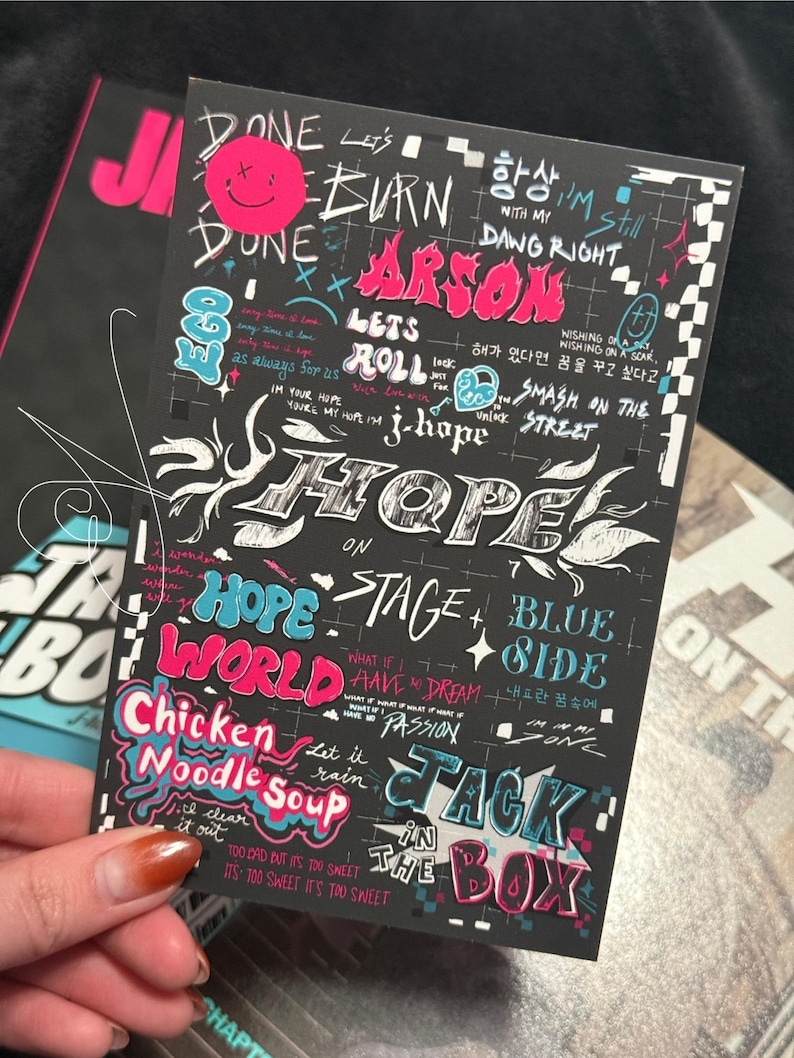 DONE
LET'S
DONE
BURN
항상
I'M Still
WITH MY
DAWG RIGHT
ARSON
EGO
every time I look
every time I love
every time I hope
as always for us
LETS
ROLL
LOCK
JUST
FOR
YOU
TO
UNLOCK
WISHING ON A SKY,
WISHING ON A SCAR,
해가 있다면 꿈을 꾸고 싶다고
SMASH ON THE
STREET
IM YOUR HOPE
YOU'RE MY HOPE I'M
j-hope
HOPE
ON
STAGE
i wonder
wonder
where
HOPE
WORLD
BLUE
SIDE
내 포란 꿈속에
WHAT IF I
HAVE NO DREAM
WHAT IF WHAT IF WHAT IF WHAT IF
WHAT IF I
HAVE NO
PASSION
I'M IN MY
ZONE
Chicken
Noodle Soup
Let it
rain
I clear
it out
JACK
IN
THE
BOX
TOO BAD BUT IT'S TOO SWEET
IT'S TOO SWEET IT'S TOO SWEET
ON TH